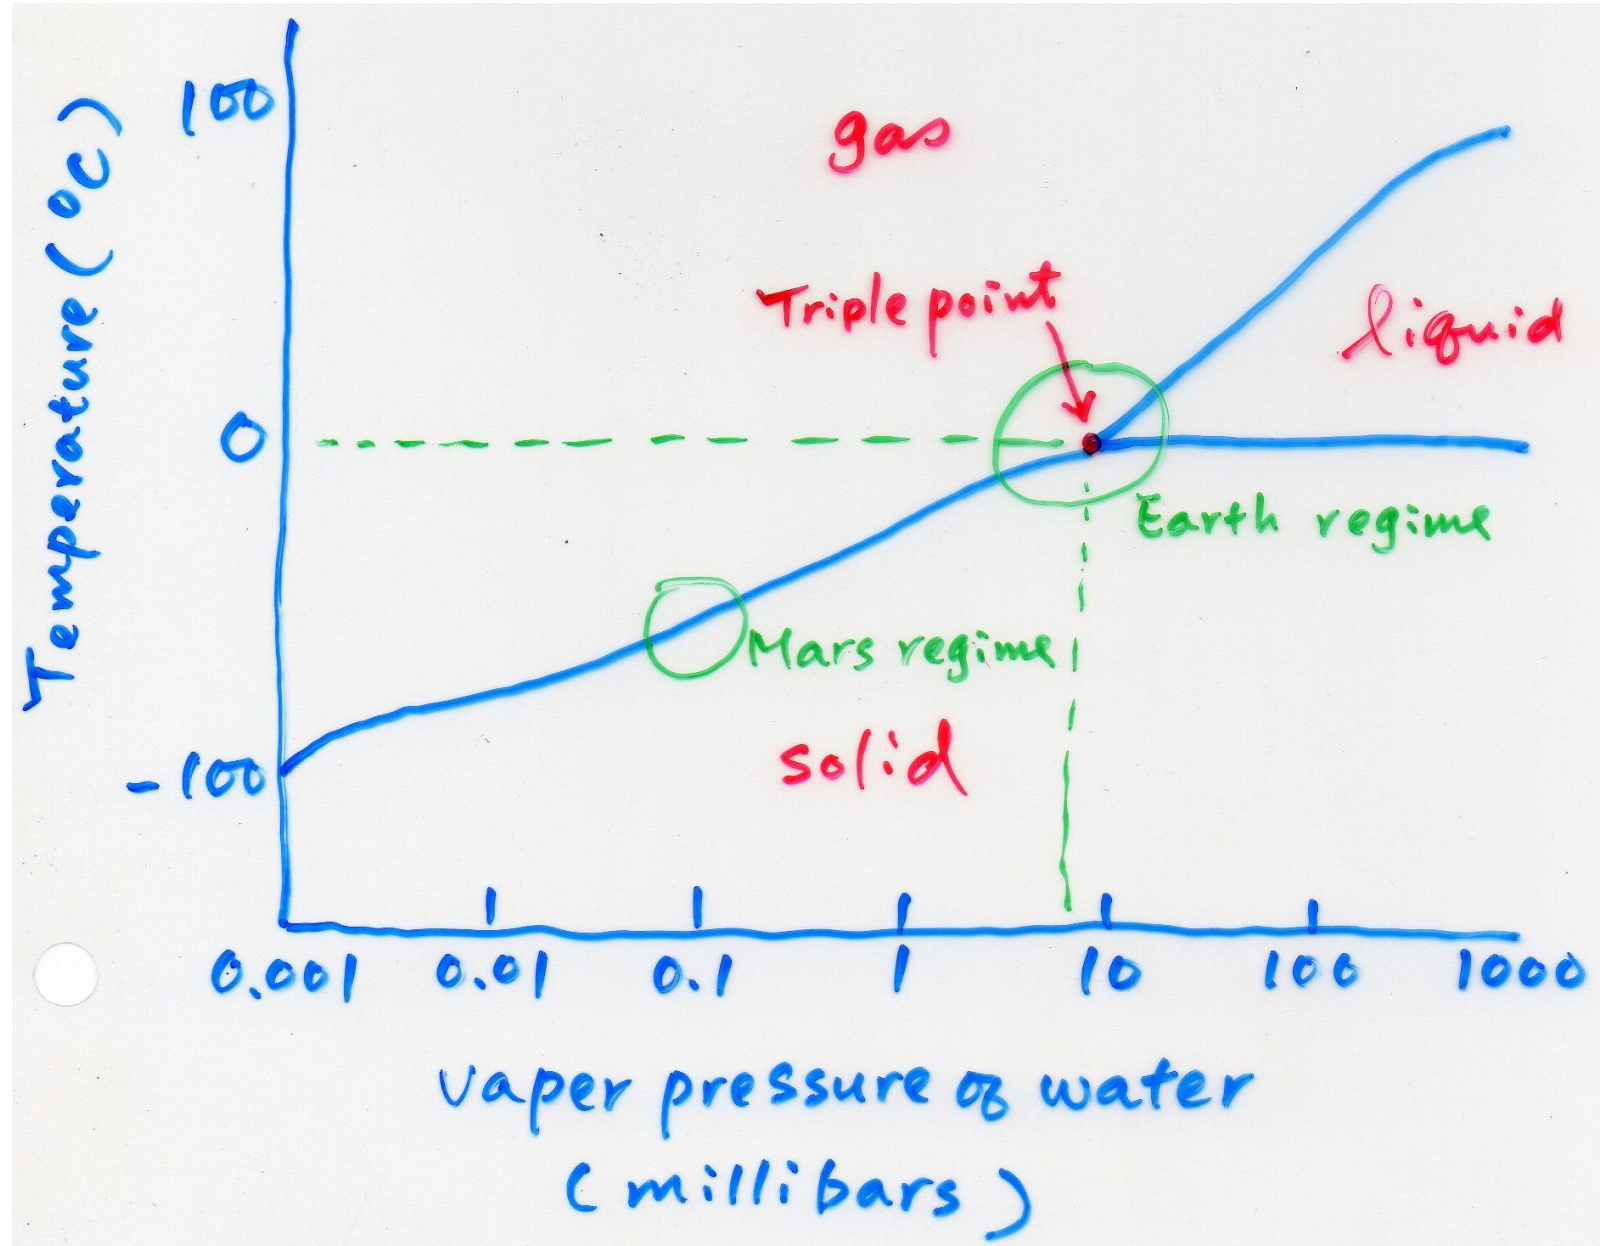 Temperature (°C)
100
gas
Triple point
liquid
0
Earth regime
Mars regime
solid
-100
0.001 0.01 0.1 1 10 100 1000
vaper pressure of water
(millibars)